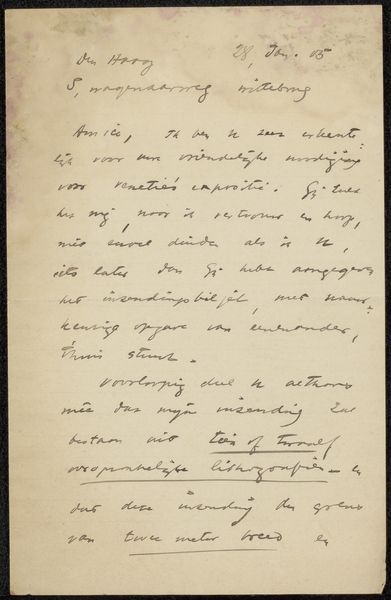 Den Haag 28, Jan. 05
S, wagenaarweg Witteburg
Amice, Ik ben u zeer erkente-
lijk voor uwe vriendelijke uitnoodiging
voor venetië's expositie. Gij
mij, naar ik vertrouw en hoop,
niet euvel duiden als ik u,
iets later dan Gij hebt aangegeven
het inzendingsbiljet, met nauw-
keurige opgave van
thuis stuur.
Voorloopig deel u althans
mee dat mijn inzending zal
bestaan uit tien of twaalf
oorspronkelijke lithografiën en
dat deze inzending de grens
van twee meter breed en